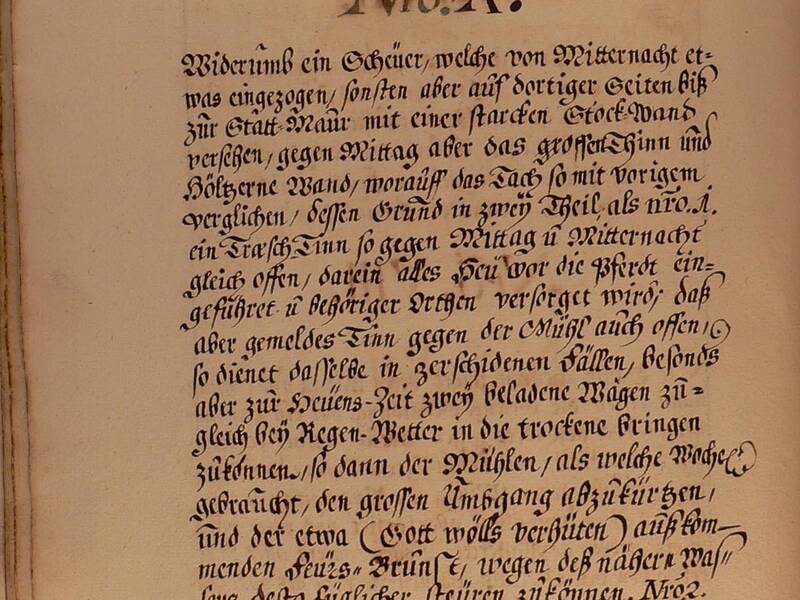 Nro. K.
Widerumb ein Scheüer, welche von Mitternacht et=
was eingezogen, sonsten aber auf dortiger Seiten biß
zur Statt-Maur mit einer starcken Stock-Wand
versehen, gegen Mittag aber das grossen Thinn und
Höltzerne Wand, worauff das Tach so mit vorigem
verglichen, dessen Grund in zweÿ Theil, als nro. 1.
ein Træsch Tinn so gegen Mittag ū Mitternacht
gleich offen, darein alles Heü vor die Pferdt ein=
geführet ū behöriger Orthen versorget wird, daß
aber gemeldes Tinn gegen der Mühl auch offen,
so dienet dasselbe in zerschidenen Fällen, besonds
aber zur Heüens-Zeit zweÿ beladene Wägen zu=
gleich beÿ Regen-Wetter in die trockene bringen
zukönnen, so dann der Mühlen, als welche Woche
gebraucht, den grossen Umbgang abzukürtzen,
und der etwa (Gott wölls verhüten) außkom=
menden Feürs-Brunst, wegen deß näher Was=
sers desto füglicher steüren zukönnen. Nro 2.